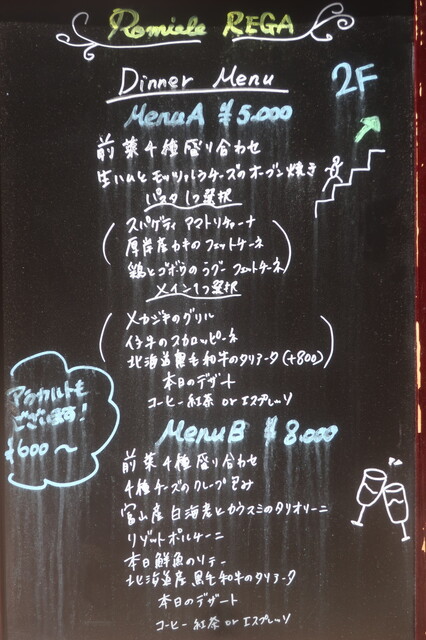 Romiele REGA
Dinner Menu
2F
Menu A ¥5,000
前菜4種盛り合わせ
生ハムとモッツァレラチーズのオーブン焼き
パスタ1つ選択
スパゲティ アマトリチャーナ
厚岸産カキのフェットチーネ
鶏とゴボウのラグーフェットチーネ
メイン1つ選択
メカジキのグリル
仔牛のスカロッピーネ
北海道黒毛和牛のタリアータ(+800)
本日のデザート
コーヒー 紅茶 or エスプレッソ
アラカルトも
ございます!
¥600〜
Menu B ¥8,000
前菜4種盛り合わせ
4種チーズのクレープ包み
富山産 白海老とカラスミのタリオリーニ
リゾットポルチーニ
本日鮮魚のソテー
北海道産黒毛和牛のタリアータ
本日のデザート
コーヒー 紅茶 or エスプレッソ